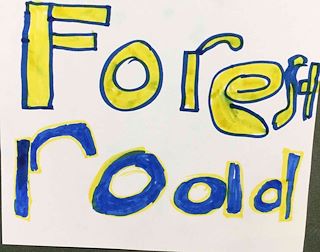 Forest
road